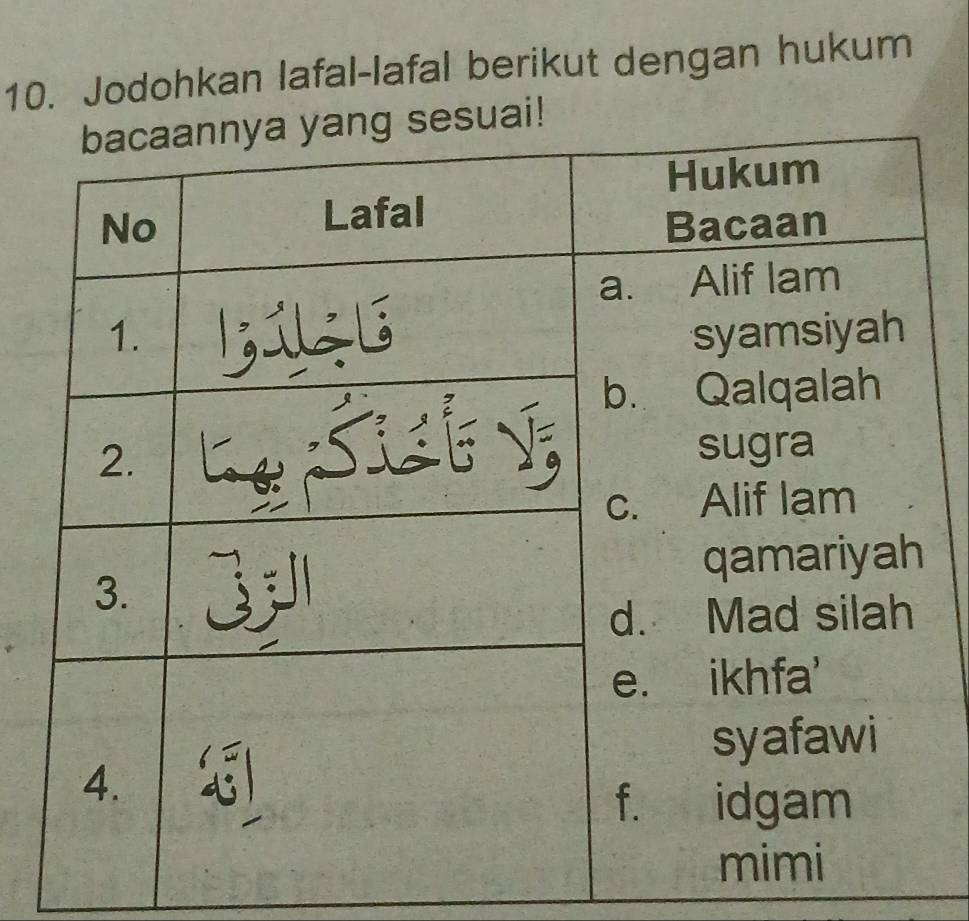 10. Jodohkan lafal-lafal berikut dengan hukum
bacaannya yang sesuai!
No Lafal Hukum Bacaan
1. فَاجْلِدُوْا
2. وَّلَا تَأْخُذْكُمْ بِهِمَا
3. الزِّنٰى
4. اِنَّهٗ
a. Alif lam
syamsiyah
b. Qalqalah
sugra
c. Alif lam
qamariyah
d. Mad silah
e. ikhfa'
syafawi
f. idgam
mimi